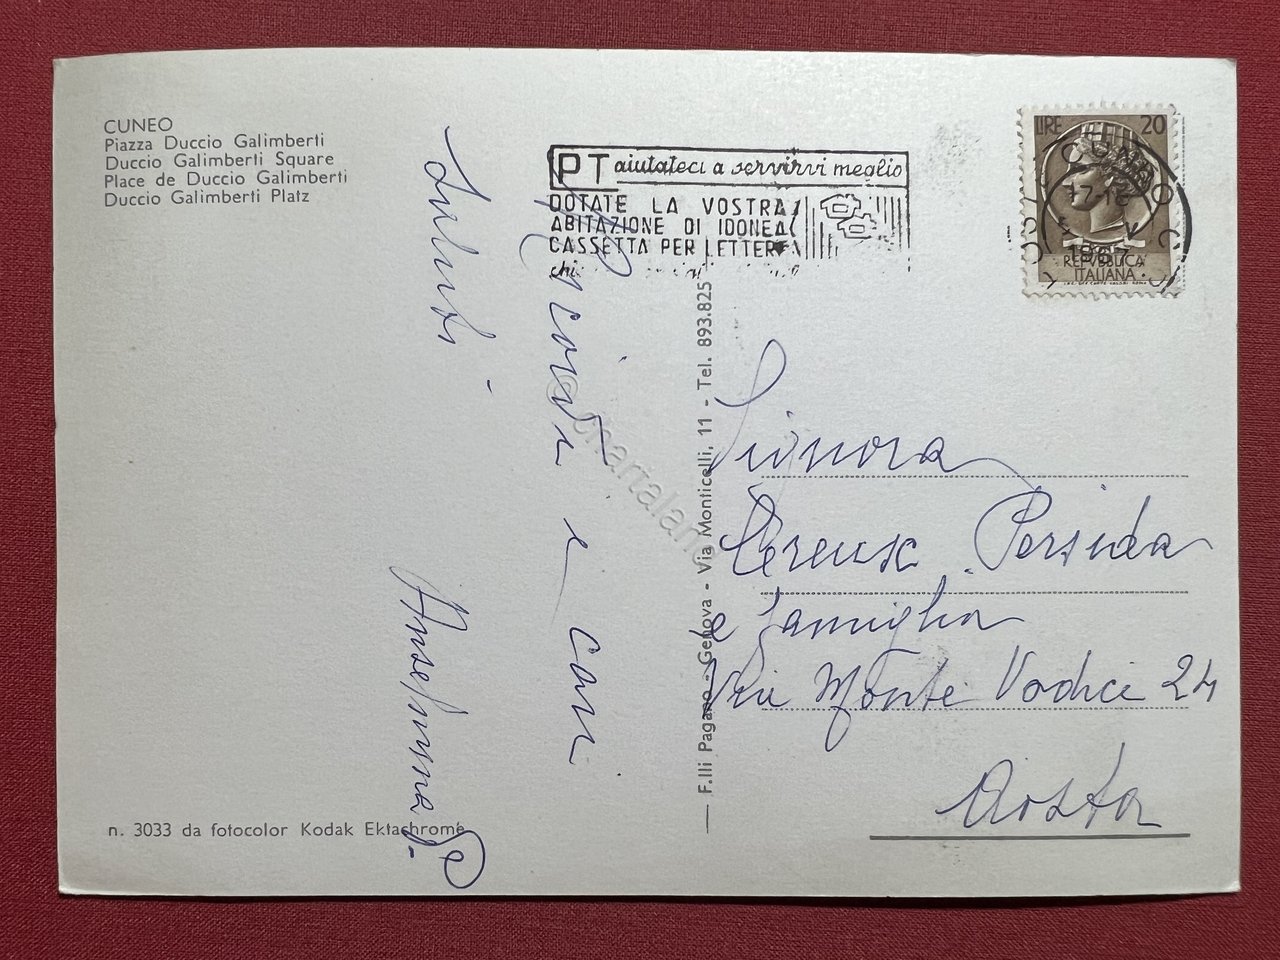 CUNEO
Piazza Duccio Galimberti
Duccio Galimberti Square
Place de Duccio Galimberti
Duccio Galimberti Platz
PT aiutateci a servirvi meglio
DOTATE LA VOSTRA
ABITAZIONE DI IDONEA
CASSETTA PER LETTERE
LIRE 20
CUNEO
1967
REPVBBLICA
ITALIANA
Ricordi e cari
Saluti
Anselmina
Signora
Persida
e famiglia
Via Monte Vodice 24
Aosta
F.lli Pagano - Genova - Via Monticelli, 11 - Tel. 893.825
n. 3033 da fotocolor Kodak Ektachrome
© chartaland